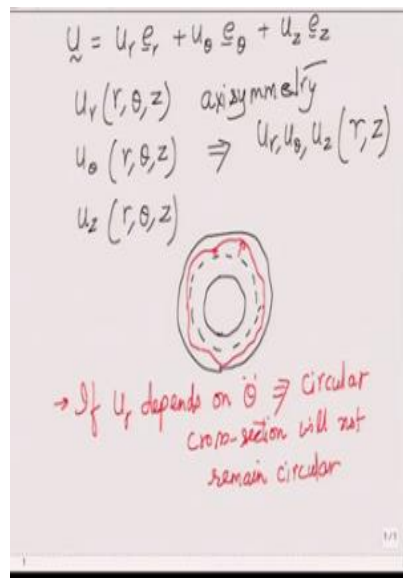 u = u_r e_r + u_θ e_θ + u_z e_z
u_r (r, θ, z) axisymmetry
u_θ (r, θ, z) ⇒ u_r, u_θ, u_z (r, z)
u_z (r, θ, z)
→ If u_r depends on 'θ' ⇒ circular
cross-section will not
remain circular
1/1